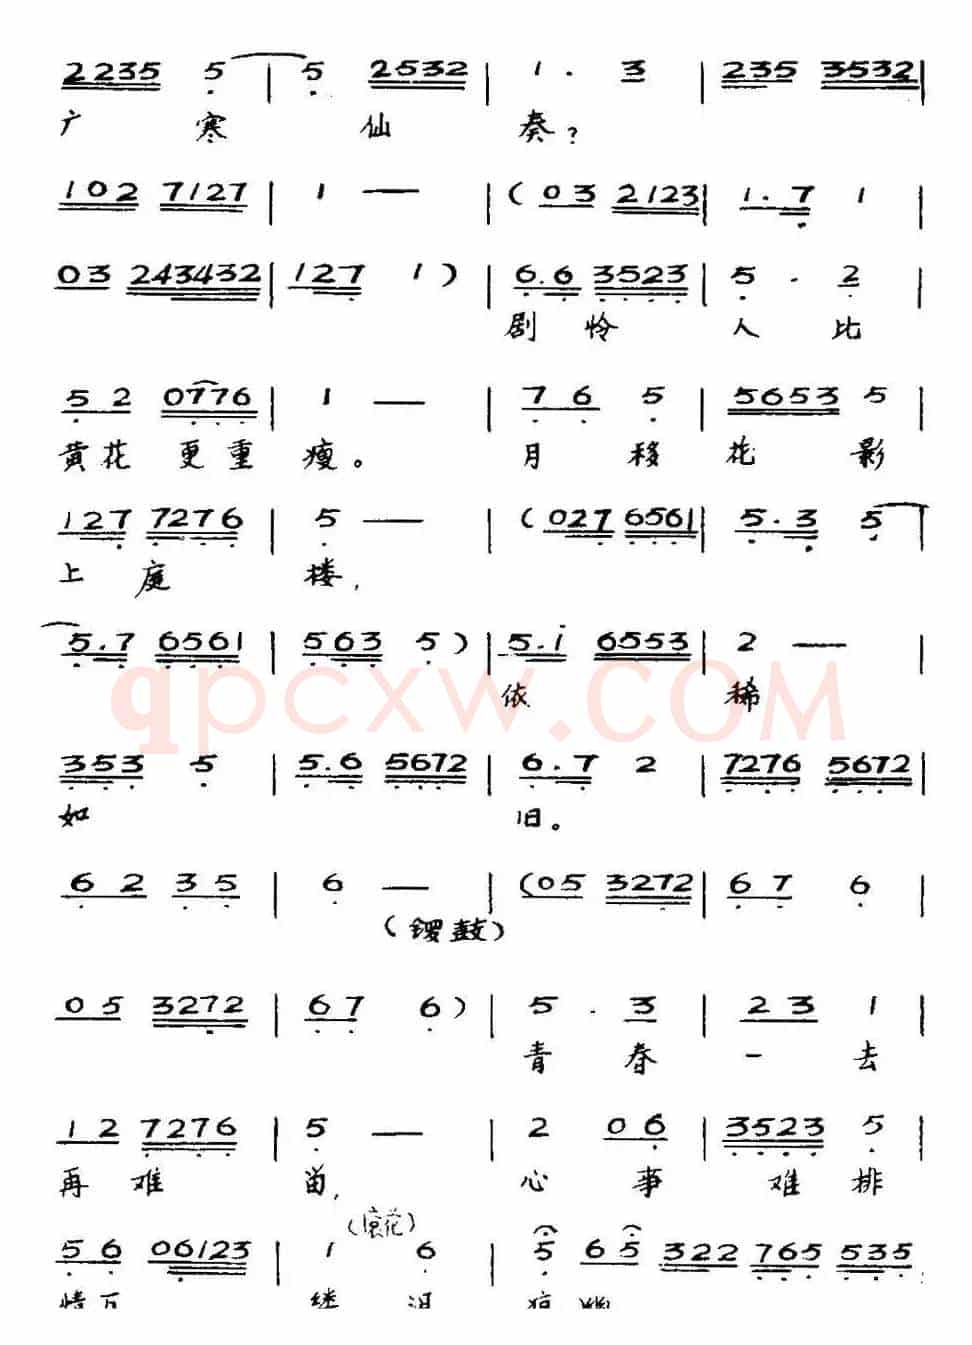 2235 5 | 5 2532 | 1 . 3 | 235 3532 |
广 寒 仙 奏？
102 7127 | 1 — | （03 2123 | 1.7 1 |
03 243432 | 127 1） | 6.6 3523 | 5 . 2 |
剧 怜 人 比
5 2 0776 | 1 — | 7 6 5 | 5653 5
黄 花 更 重 瘦。 月 移 花 影
127 7276 | 5 — | （027 6561 | 5.3 5 |
上 庭 楼，
5.7 6561 | 563 5） | 5.i 6553 | 2 — |
依 稀
qpcxw.COM
353 5 | 5.6 5672 | 6.7 2 | 7276 5672 |
如 旧。
6 2 3 5 | 6 — | （05 3272 | 6 7 6 |
（锣鼓）
05 3272 | 6 7 6） | 5 . 3 | 2 3 1 |
青 春 一 去
1 2 7276 | 5 — | 2 06 | 3523 5
再 难 留， 心 事 难 排
（滚花）
5 6 06123 | 1 6 | 5 65 322 765 535